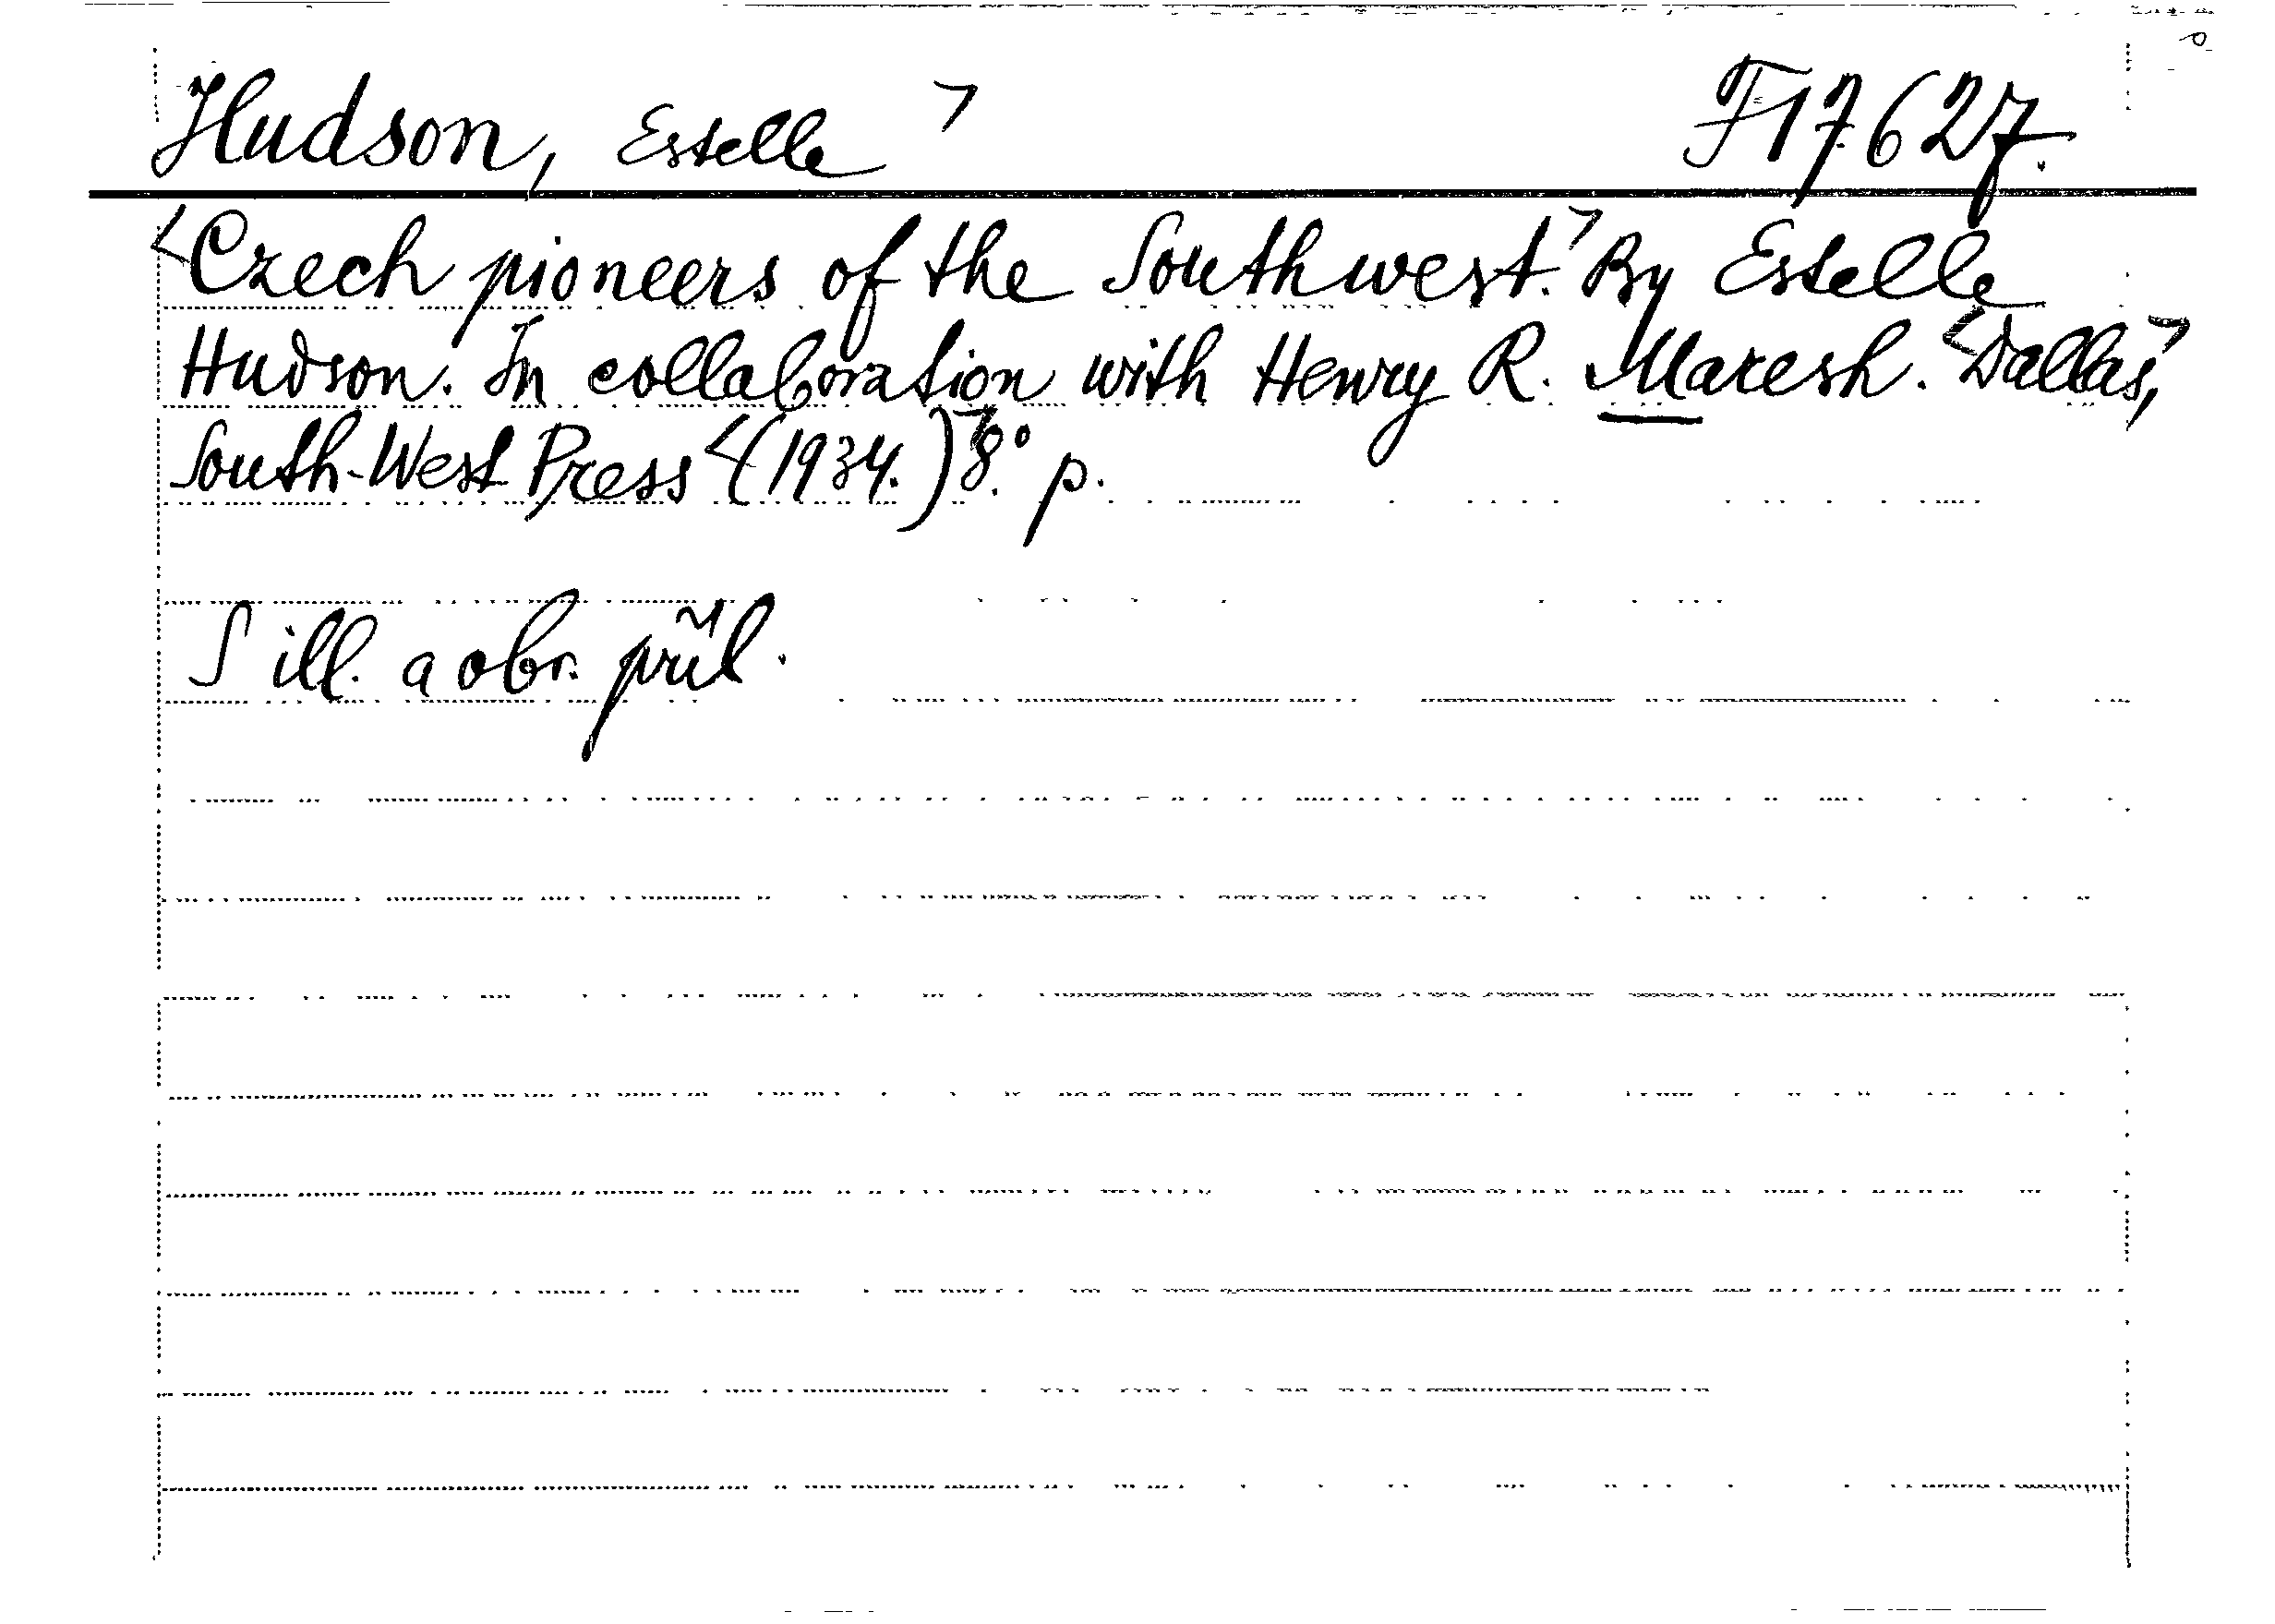 Hudson, Estelle > F 17627.
<Czech pioneers of the Southwest.> By Estelle
Hudson. In collaboration with Henry R. Maresh. <Dallas>,
South-West Press <(1934.)> 8.° p.
S ill. a obr. příl.